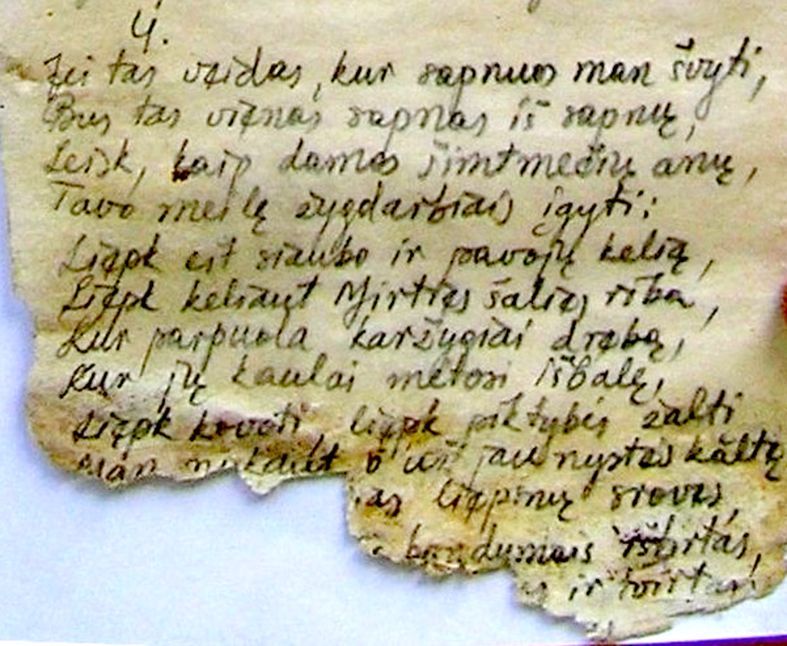 4.
Jei tas veidas, kur sapnuos man švyti,
Bus tas vienas sapnas iš sapnų,
Leisk, kaip damos šimtmečių anų,
Tavo meilę žygdarbiais įgyti:
Liepk eit siaubo ir pavojų kelią,
Liepk keliaut Mirties šalies riba,
Kur parpuola karžygiai drąbą,
Kur jų kaulai mėtosi išbalę,
Liepk kovoti, liepk piktybės žalti
Man nukaut o už jaunystės kaltę
liepsnų sroves,
bandymais ištirtas,
ir tvirtas